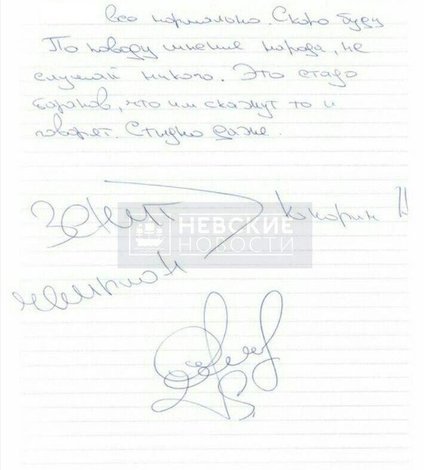 все нормально. Скоро буду
По поводу мнение народа, не
слушай никого. Это стадо
баранов, что им скажут то и
говорят. Стыдно даже.
Зенит
Кокорин
чемпион
НЕВСКИЕ
НОВОСТИ